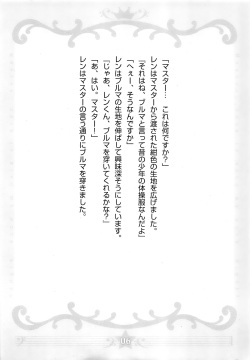 「マスター…　これは何ですか？」
レンはマスターから渡された紺色の生地を広げました。
『それはね、ブルマと言って昔の少年の体操服なんだよ』
「へぇー、そうなんですか」
レンはブルマの生地を伸ばして興味深そうにしています。
『じゃあ、レンくん、ブルマを穿いてくれるかな？』
「あ、はい。マスター！」
レンはマスターの言う通りにブルマを穿きました。